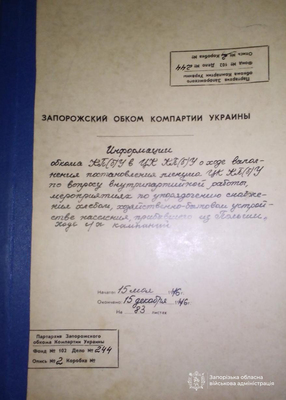 Партархив Запорожского
обкома Компартии Украины
Фонд № 102 Дело № 244
Опись № 2 Коробка №
ЗАПОРОЖСКИЙ ОБКОМ КОМПАРТИИ УКРАИНЫ
Информации
обкома КП(б)У в ЦК КП(б)У о ходе выпол-
нения постановления пленума ЦК КП(б)У
по вопросу внутрипартийной работы,
мероприятиях по упорядочению снабже-
ния хлебом, хозяйственно-бытовом устрой-
стве населения, прибывшего из
ходе с/х кампаний
Начато: 15 мая 46 г.
Окончено: 15 декабря 46 г.
На 83 листах
Партархив Запорожского
обкома Компартии Украины
Фонд № 102 Дело № 244
Опись № 2 Коробка №
Запорізька обласна
військова адміністрація